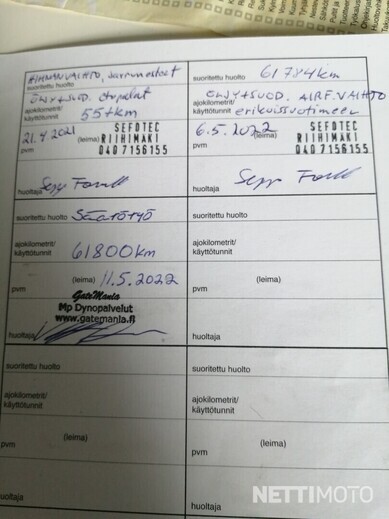 HIHNAN VAIHTO, jarrunesteet
suoritettu huolto
ÖLJY+SUOD. etupalat
ajokilometrit/
käyttötunnit
55tkm
21.4.2021
SEFOTEC
(leima) RIIHIMÄKI
pvm
040 7156155
huoltaja
61784km
suoritettu huolto
ÖLJY+SUOD, AIRF. VAIHTO
ajokilometrit/
käyttötunnit
6.5.2022
SEFOTEC
(leima) RIIHIMÄKI
pvm
040 7156155
huoltaja
suoritettu huolto
Säätötyö
ajokilometrit/
käyttötunnit
61800km
pvm
(leima)
11.5.2022
GateMania
Mp Dynopalvelut
www.gatemania.fi
huoltaja
suoritettu huolto
ajokilometrit/
käyttötunnit
pvm
(leima)
huoltaja
suoritettu huolto
ajokilometrit/
käyttötunnit
pvm
(leima)
huoltaja
suoritettu huolto
ajokilometrit/
käyttötunnit
pvm
(leima)
huoltaja
NETTIMOTO